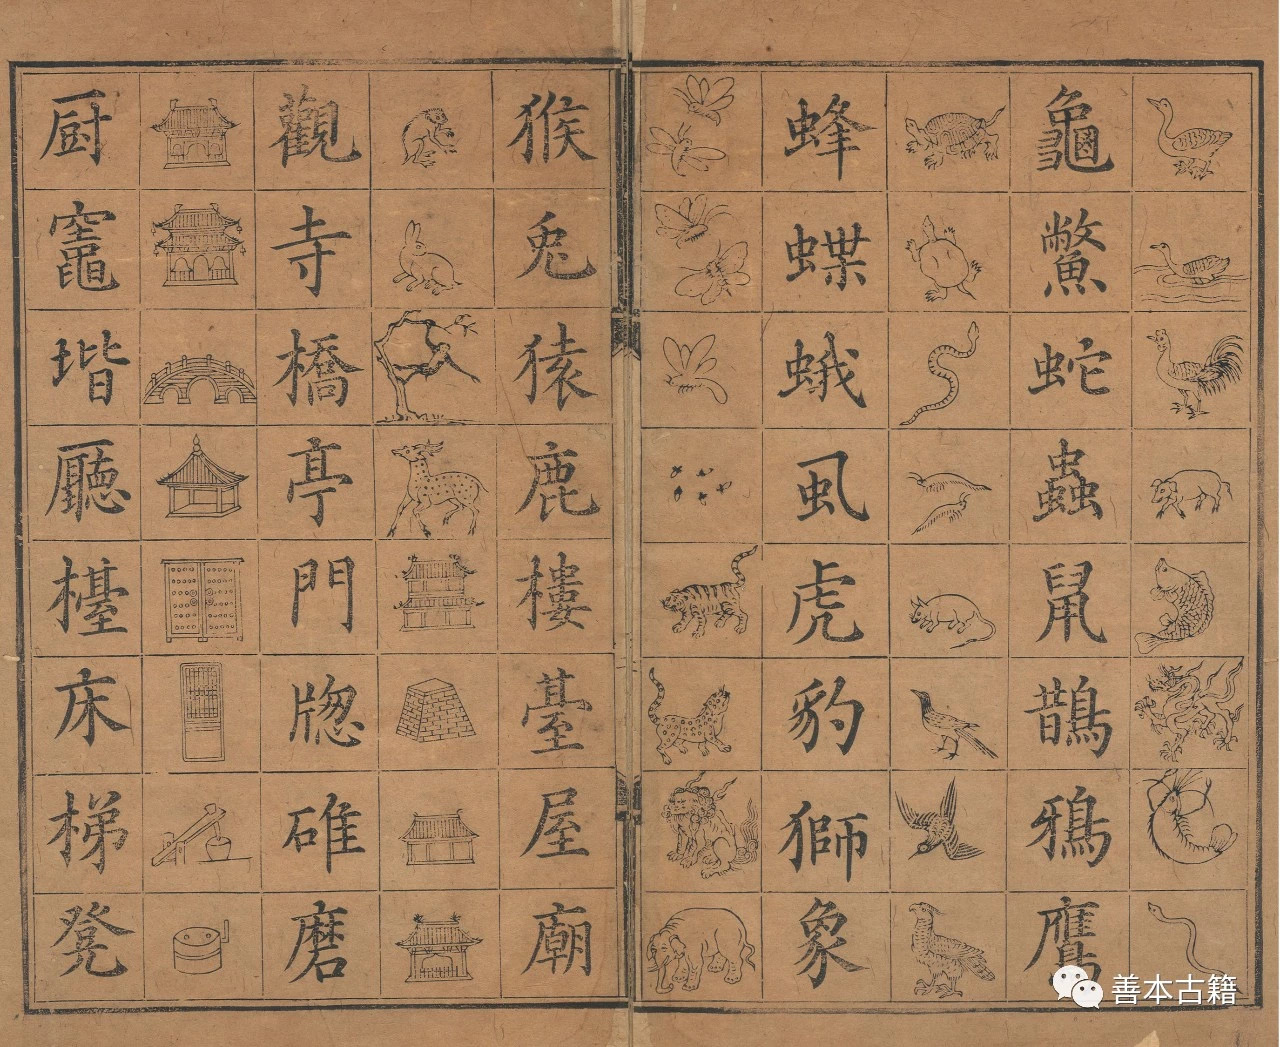 龜鱉蛇蟲鼠鵲鴉鷹
蜂蝶蛾虱虎豹獅象
猴兔猿鹿樓臺屋廟
觀寺橋亭門牎碓磨
厨竈堦廳檯床梯凳
善本古籍